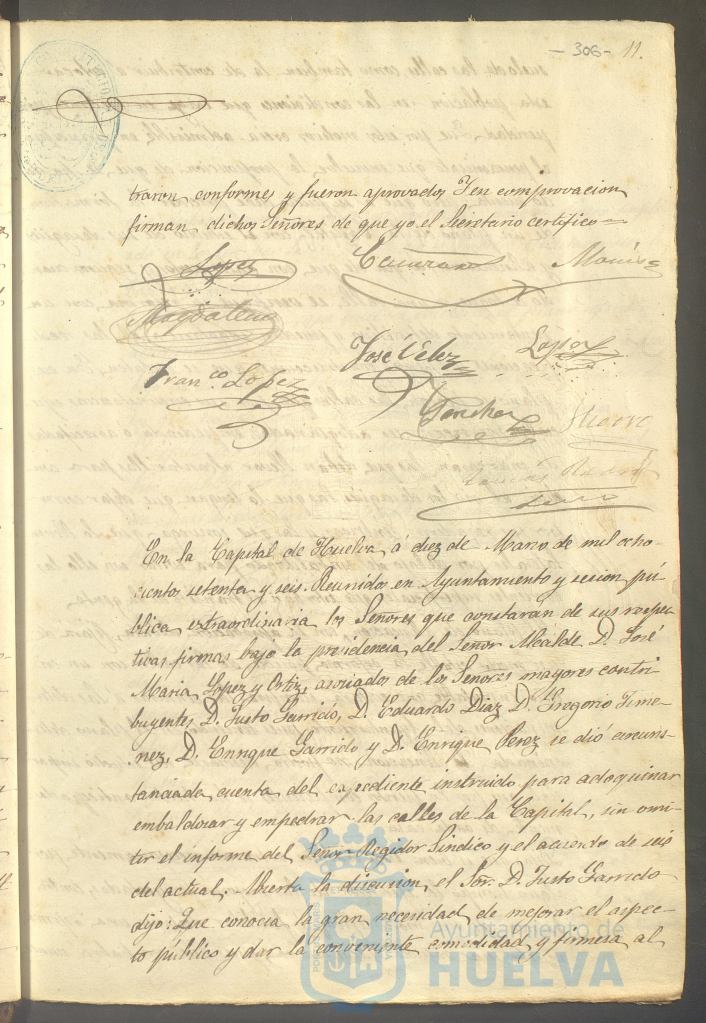 - 306 - 11.
traron conformes y fueron aprovados Y en comprovacion
firman dichos Señores de que yo el Secretario certifico=
Lopez
Magdalena
José Vélez
Lopez
Franco. Lopez
Sanchez
En la Capital de Huelva á diez de Marzo de mil ocho-
cientos setenta y seis. Reunidos en Ayuntamiento y sesion pú-
blica extraordinaria los Señores que constaran de sus respec-
tivas firmas bajo la presidencia del Señor Alcalde D. José
Maria Lopez y Ortiz, asociados de los Señores mayores contri-
buyentes D. Justo Garrido, D. Eduardo Diaz D. Gregorio Jime-
nez, D. Enrique Garrido y D. Enrique Perez se dió circuns-
tanciada cuenta del expediente instruido para adoquinar
embaldozar y empedrar las calles de la Capital, sin omi-
tir el informe del Señor Regidor Síndico y el acuerdo de seis
del actual. Abierta la discucion, el Sor. D. Justo Garrido
dijo: Que conocia la gran necesidad de mejorar el aspec-
to público y dar la conveniente comodidad y firmesa al
Ayuntamiento de
HUELVA